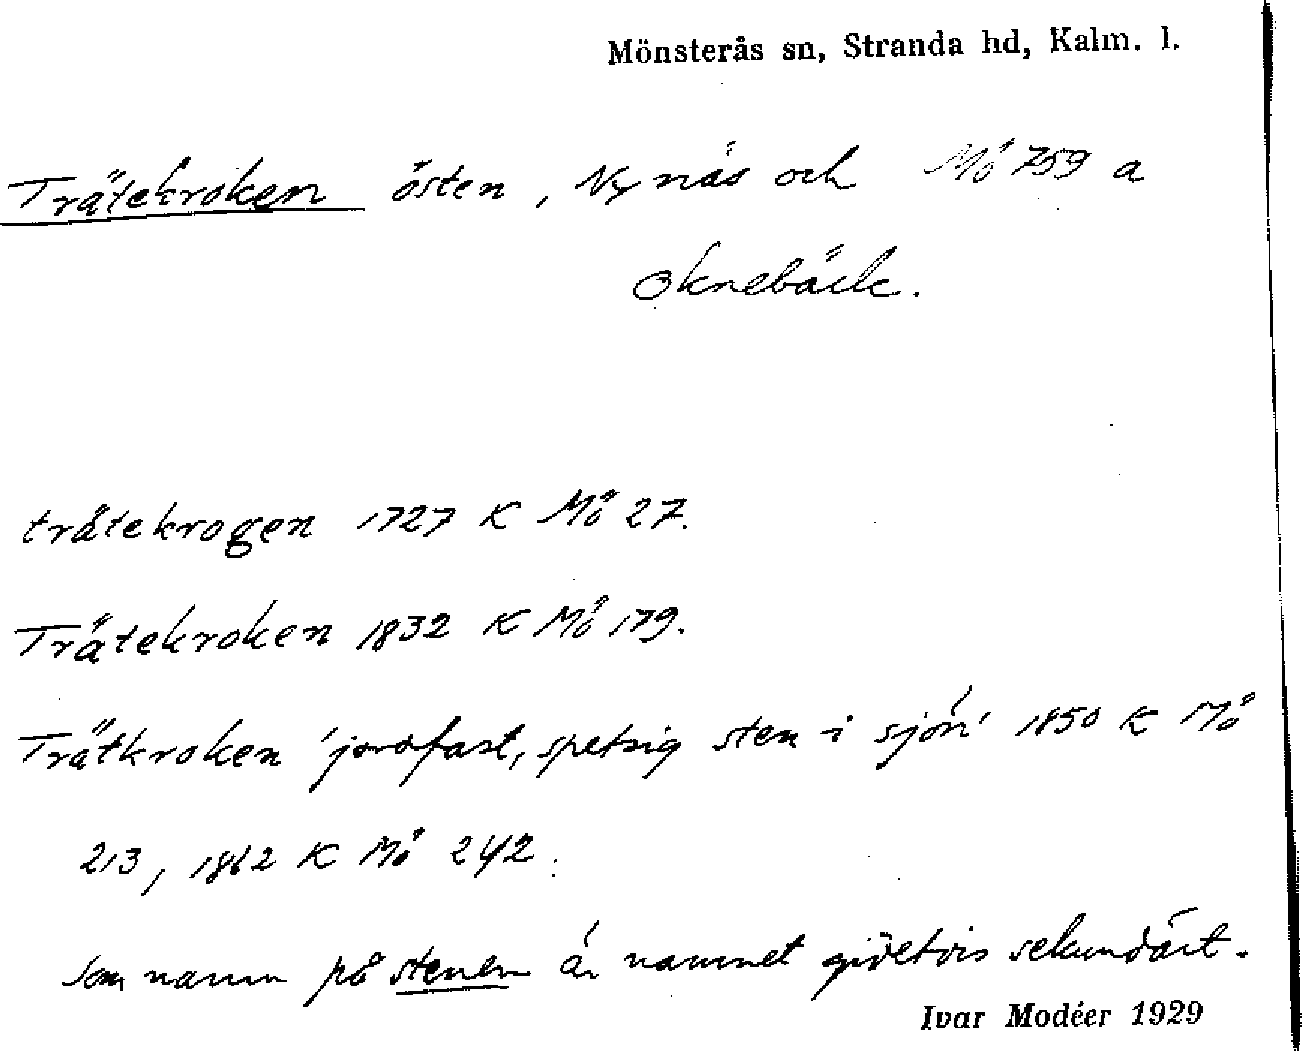 Mönsterås sn, Stranda hd, Kalm. l.
Trätekroken östen, Nynäs och Mö 759 a
Oknebäck.
träte krogen 1727 K Mö 27.
Trätekroken 1832 K Mö 179.
Trätkroken 'jordfast, spetsig sten i sjön' 1850 K Mö
213, 1862 K Mö 242.
Som namn på stenen är namnet givetvis sekundärt.
Ivar Modéer 1929